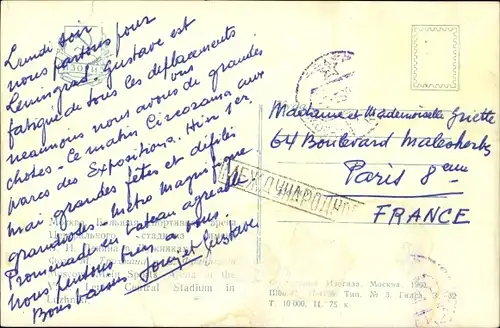 Lundi soir
nous partons pour
Leningrad. Gustave est
fatigué de tous les déplacements
neanmoins nous avons vu de grandes
choses - Ce matin Circorama aux
parcs des Expositions. Hier 1er
mai grandes fêtes et défilés
grandioses - Métro Magnifique
Promenade en bateau agréable
nous pensons bien à vous.
Bons baisers Gustave
Madame et Mademoiselle
64 Boulevard Malesherbes
Paris 8eme
FRANCE
МЕЖДУНАРОДНОЕ
Москва. Большая спортивная арена
Центрального стадиона имени
Central Stadium in
Москва. 1960.
Т. 10 000. Ц. 75 к.